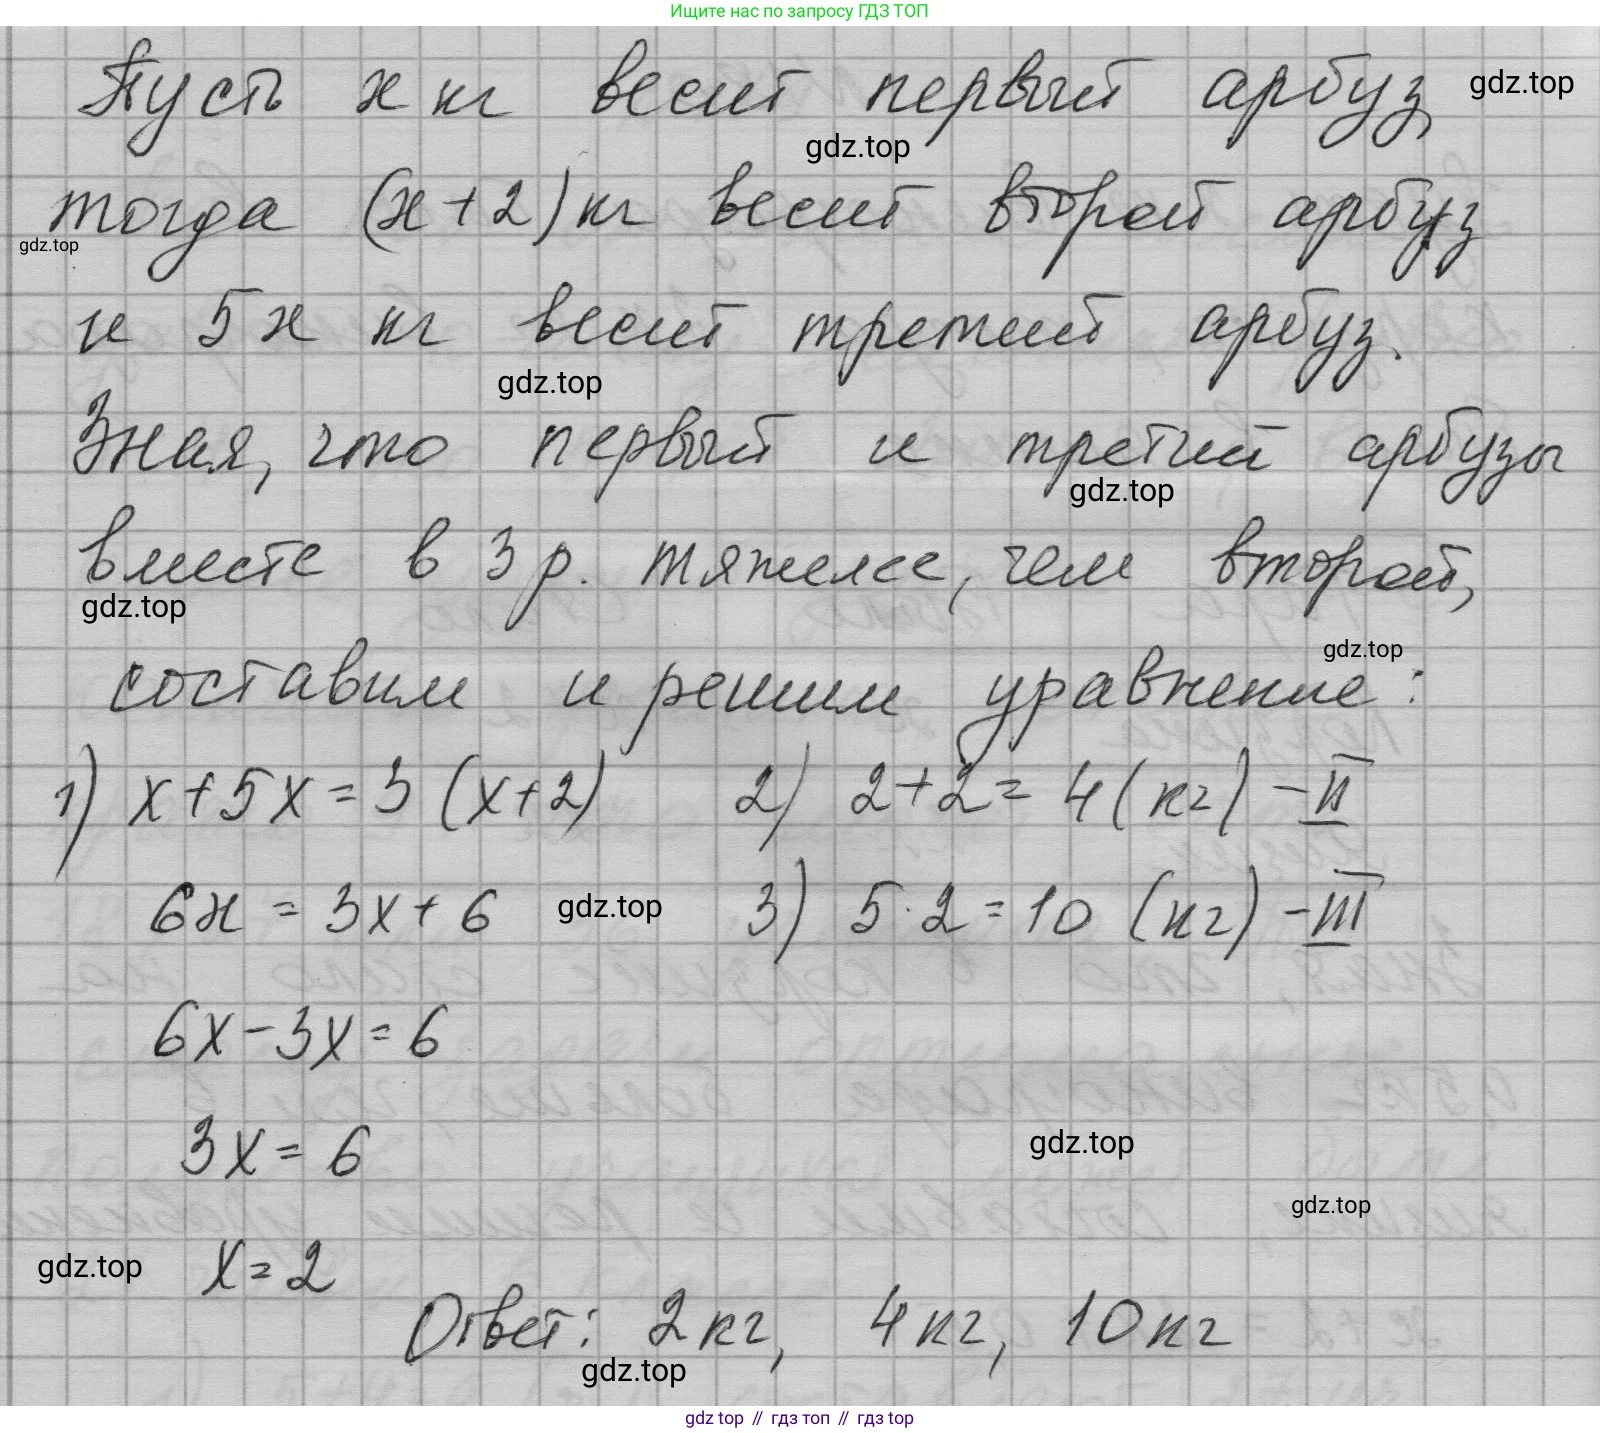 Ищите нас по запросу ГДЗ ТОП
Пусть х кг весит первый арбуз, gdz.top
gdz.top
тогда (х+2) кг весит второй арбуз
gdz.top
и 5х кг весит третий арбуз.
gdz.top
Зная, что первый и третий арбузы
gdz.top
вместе в 3 р. тяжелее, чем второй,
gdz.top
gdz.top
составим и решим уравнение:
1) х+5х=3(х+2) 2) 2+2=4(кг) – II
6х = 3х+6 gdz.top 3) 5·2=10 (кг) – III
6х–3х=6
3х=6 gdz.top
gdz.top
gdz.top х=2
Ответ: 2кг, 4кг, 10кг
gdz.top
gdz top // гдз топ // gdz top